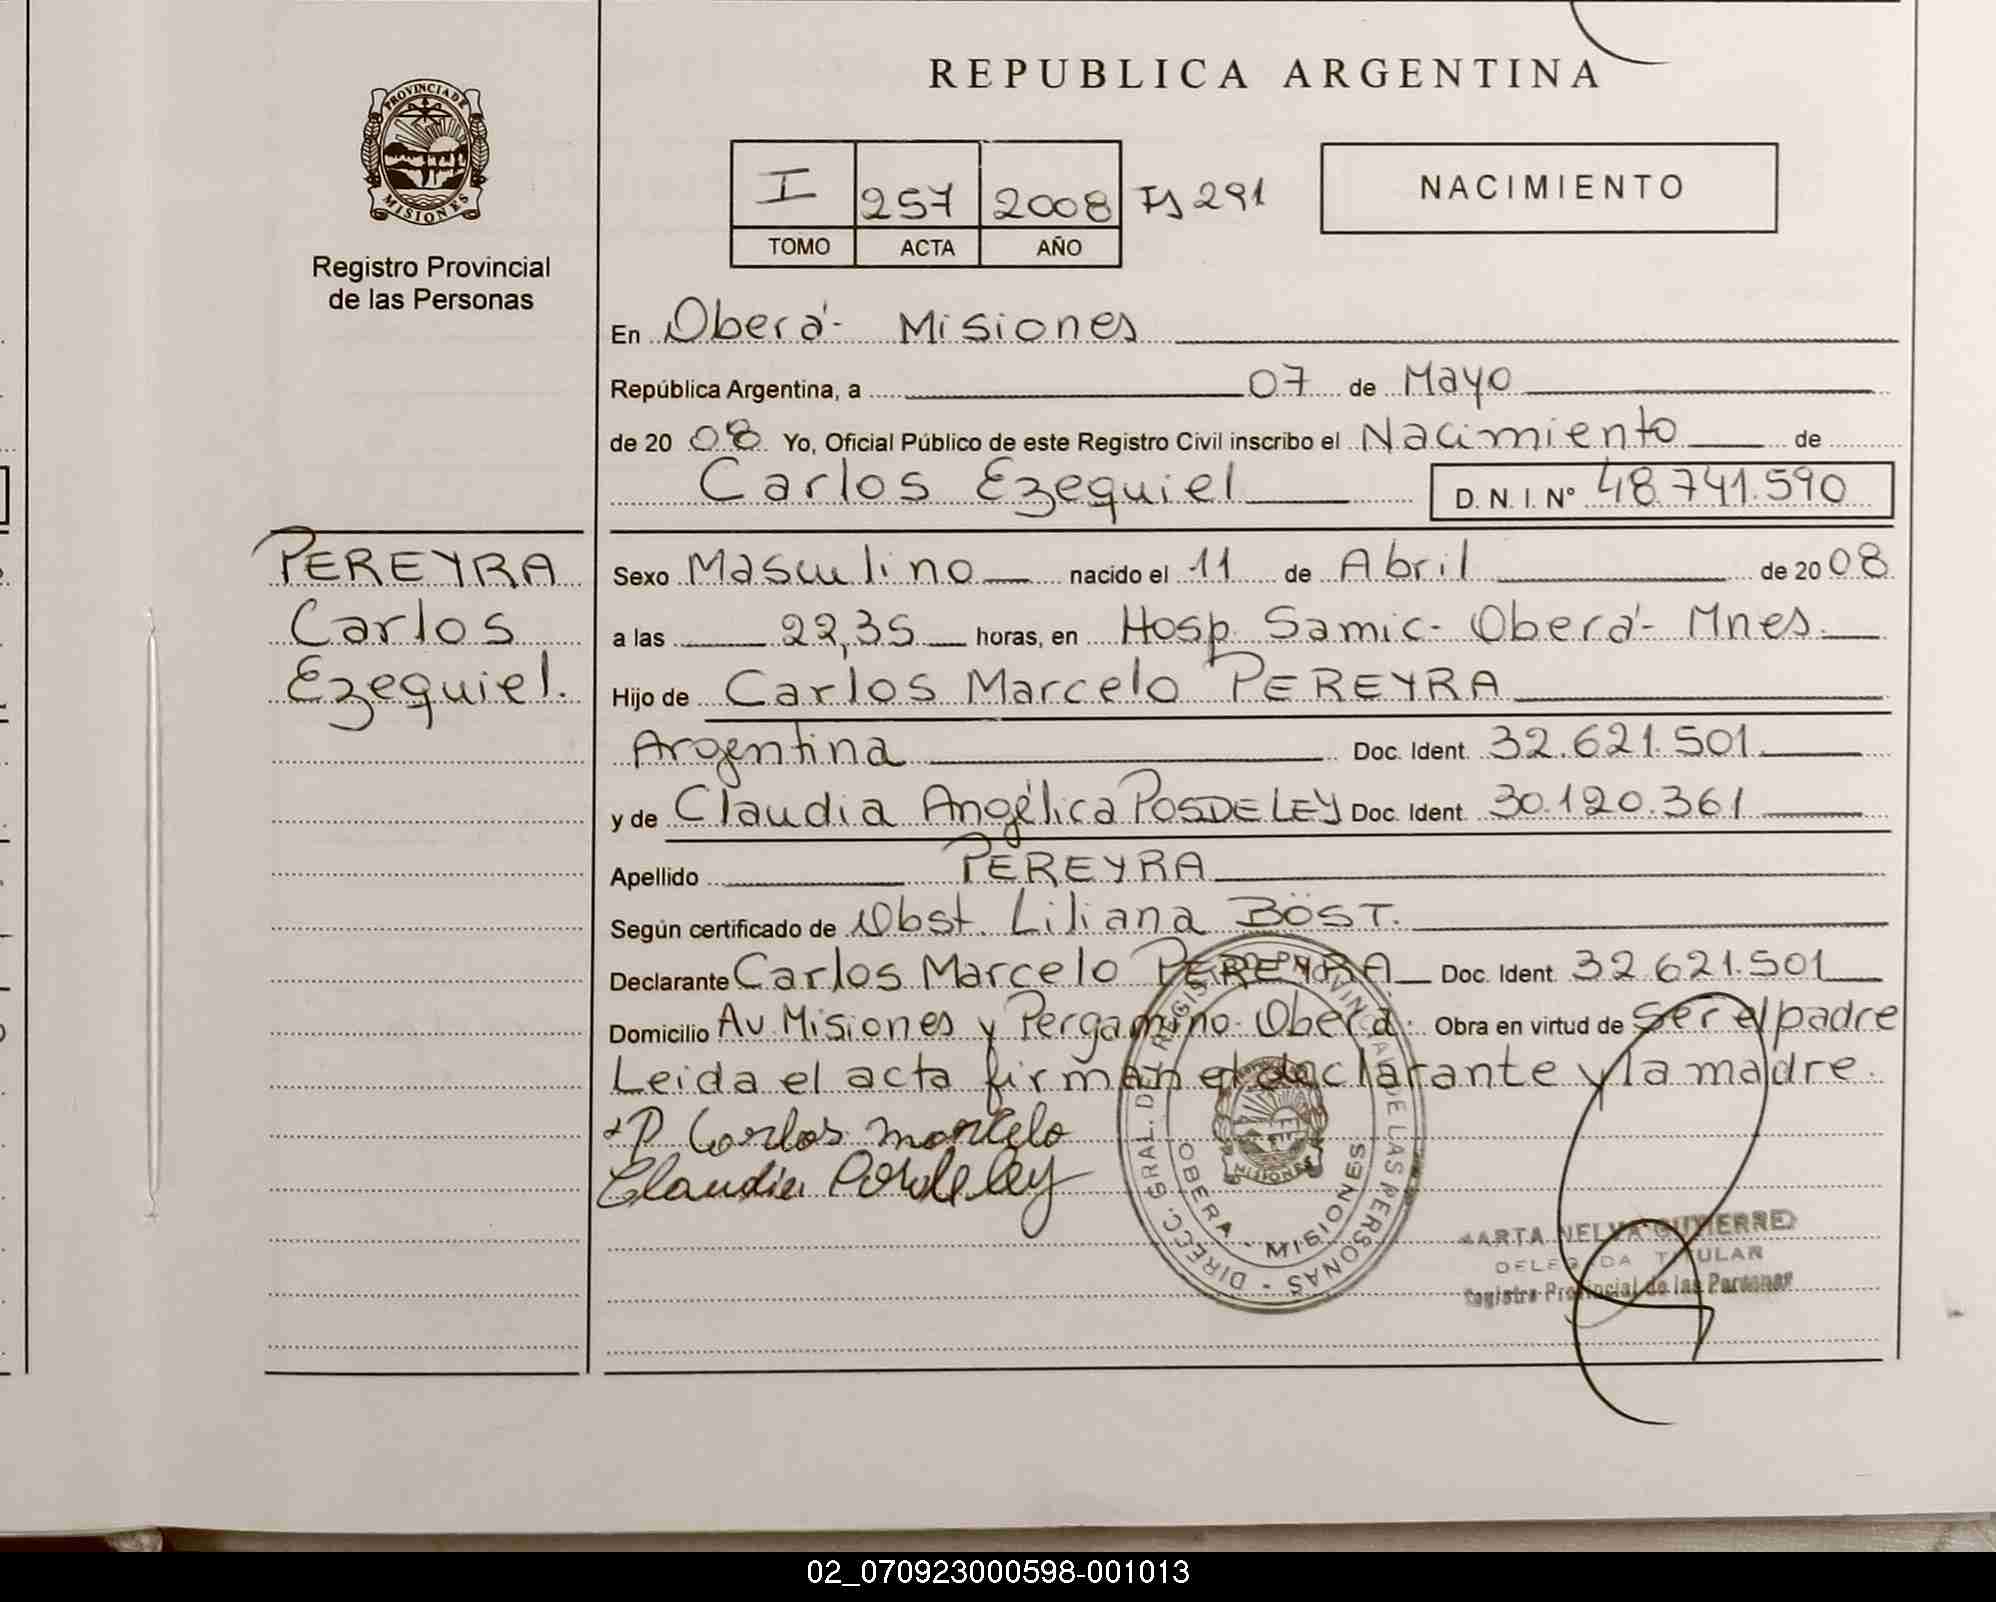 REPUBLICA ARGENTINA
PROVINCIA DE
MISIONES
Registro Provincial
de las Personas
I 257 2008 Fs 291
TOMO ACTA AÑO
NACIMIENTO
En Oberá- Misiones
República Argentina, a 07 de Mayo
de 20 08 Yo, Oficial Público de este Registro Civil inscribo el Nacimiento de
Carlos Ezequiel D. N. I. N° 48.741.590
PEREYRA
Carlos
Ezequiel.
Sexo Masculino nacido el 11 de Abril de 20 08
a las 22,35 horas, en Hosp. Samic- Oberá- Mnes.
Hijo de Carlos Marcelo PEREYRA
Argentina Doc. Ident. 32.621.501
y de Claudia Angélica POSDELEY Doc. Ident. 30.120.361
Apellido PEREYRA
Según certificado de Obst. Liliana BÖST.
Declarante Carlos Marcelo PEREYRA Doc. Ident. 32.621.501
Domicilio Av. Misiones y Pergamino- Oberá. Obra en virtud de ser el padre
Leida el acta firman el declarante y la madre.
P Carlos marcelo
Claudia Posdeley
DIREC. GRAL. DEL REGISTRO PROVINCIAL DE LAS PERSONAS
OBERA - MISIONES
MISIONES
MARTA NELVA GUTIERREZ
DELEGADA TITULAR
Registro Provincial de las Personas
02_070923000598-001013